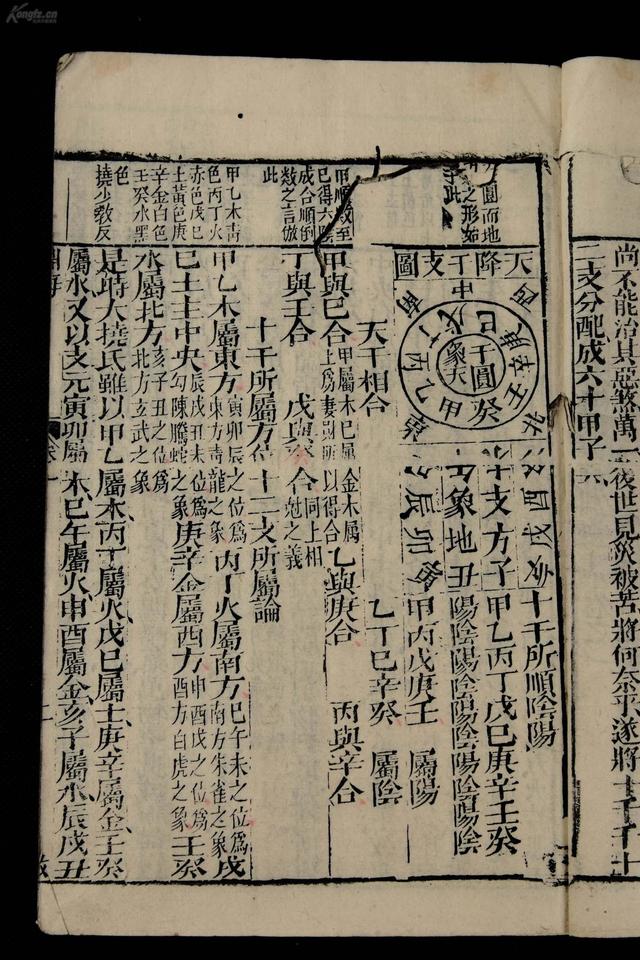 Kongfz.cn
尚不能治其惡煞萬一後世見災被苦將何奈乎遂將十干十
二支分配成六十甲子
方圓而地
之形如
此
甲順數至
己得六
成合順倒
數之言倣
此
甲乙木青
色丙丁火
赤色戊己
土黃色庚
辛金白色
壬癸水黑
色
撓少教反
天降干支圖
中
南
西
東
北
戊己
丙丁
甲乙
庚辛
壬癸
干圓
象天
十支方
象地
子丑
卯辰
酉戌亥
十干所順陰陽
甲乙丙丁戊己庚辛壬癸
陽陰陽陰陽陰陽陰陽陰
甲丙戊庚壬 屬陽
乙丁己辛癸 屬陰
天干相合
甲與己合 甲屬木己屬 金木屬 乙與庚合 丙與辛合
上爲妻財所以得合
丁與壬合 戊與癸合 同上相尅之義
十干所屬方位 十二支所屬論
甲乙木屬東方 寅卯辰之位爲東方青龍之象 丙丁火屬南方 巳午未之位爲南方朱雀之象 戊
己土主中央 辰戌丑未位爲勾陳騰蛇之象 庚辛金屬西方 申酉戌之位爲西方白虎之象 壬癸
水屬北方 亥子丑之位爲北方玄武之象
是時大撓氏雖以甲乙屬木丙丁屬火戊己屬土庚辛屬金壬癸
屬水又以支元寅卯屬木巳午屬火申酉屬金亥子屬水辰戌丑
淵海
卷一
二